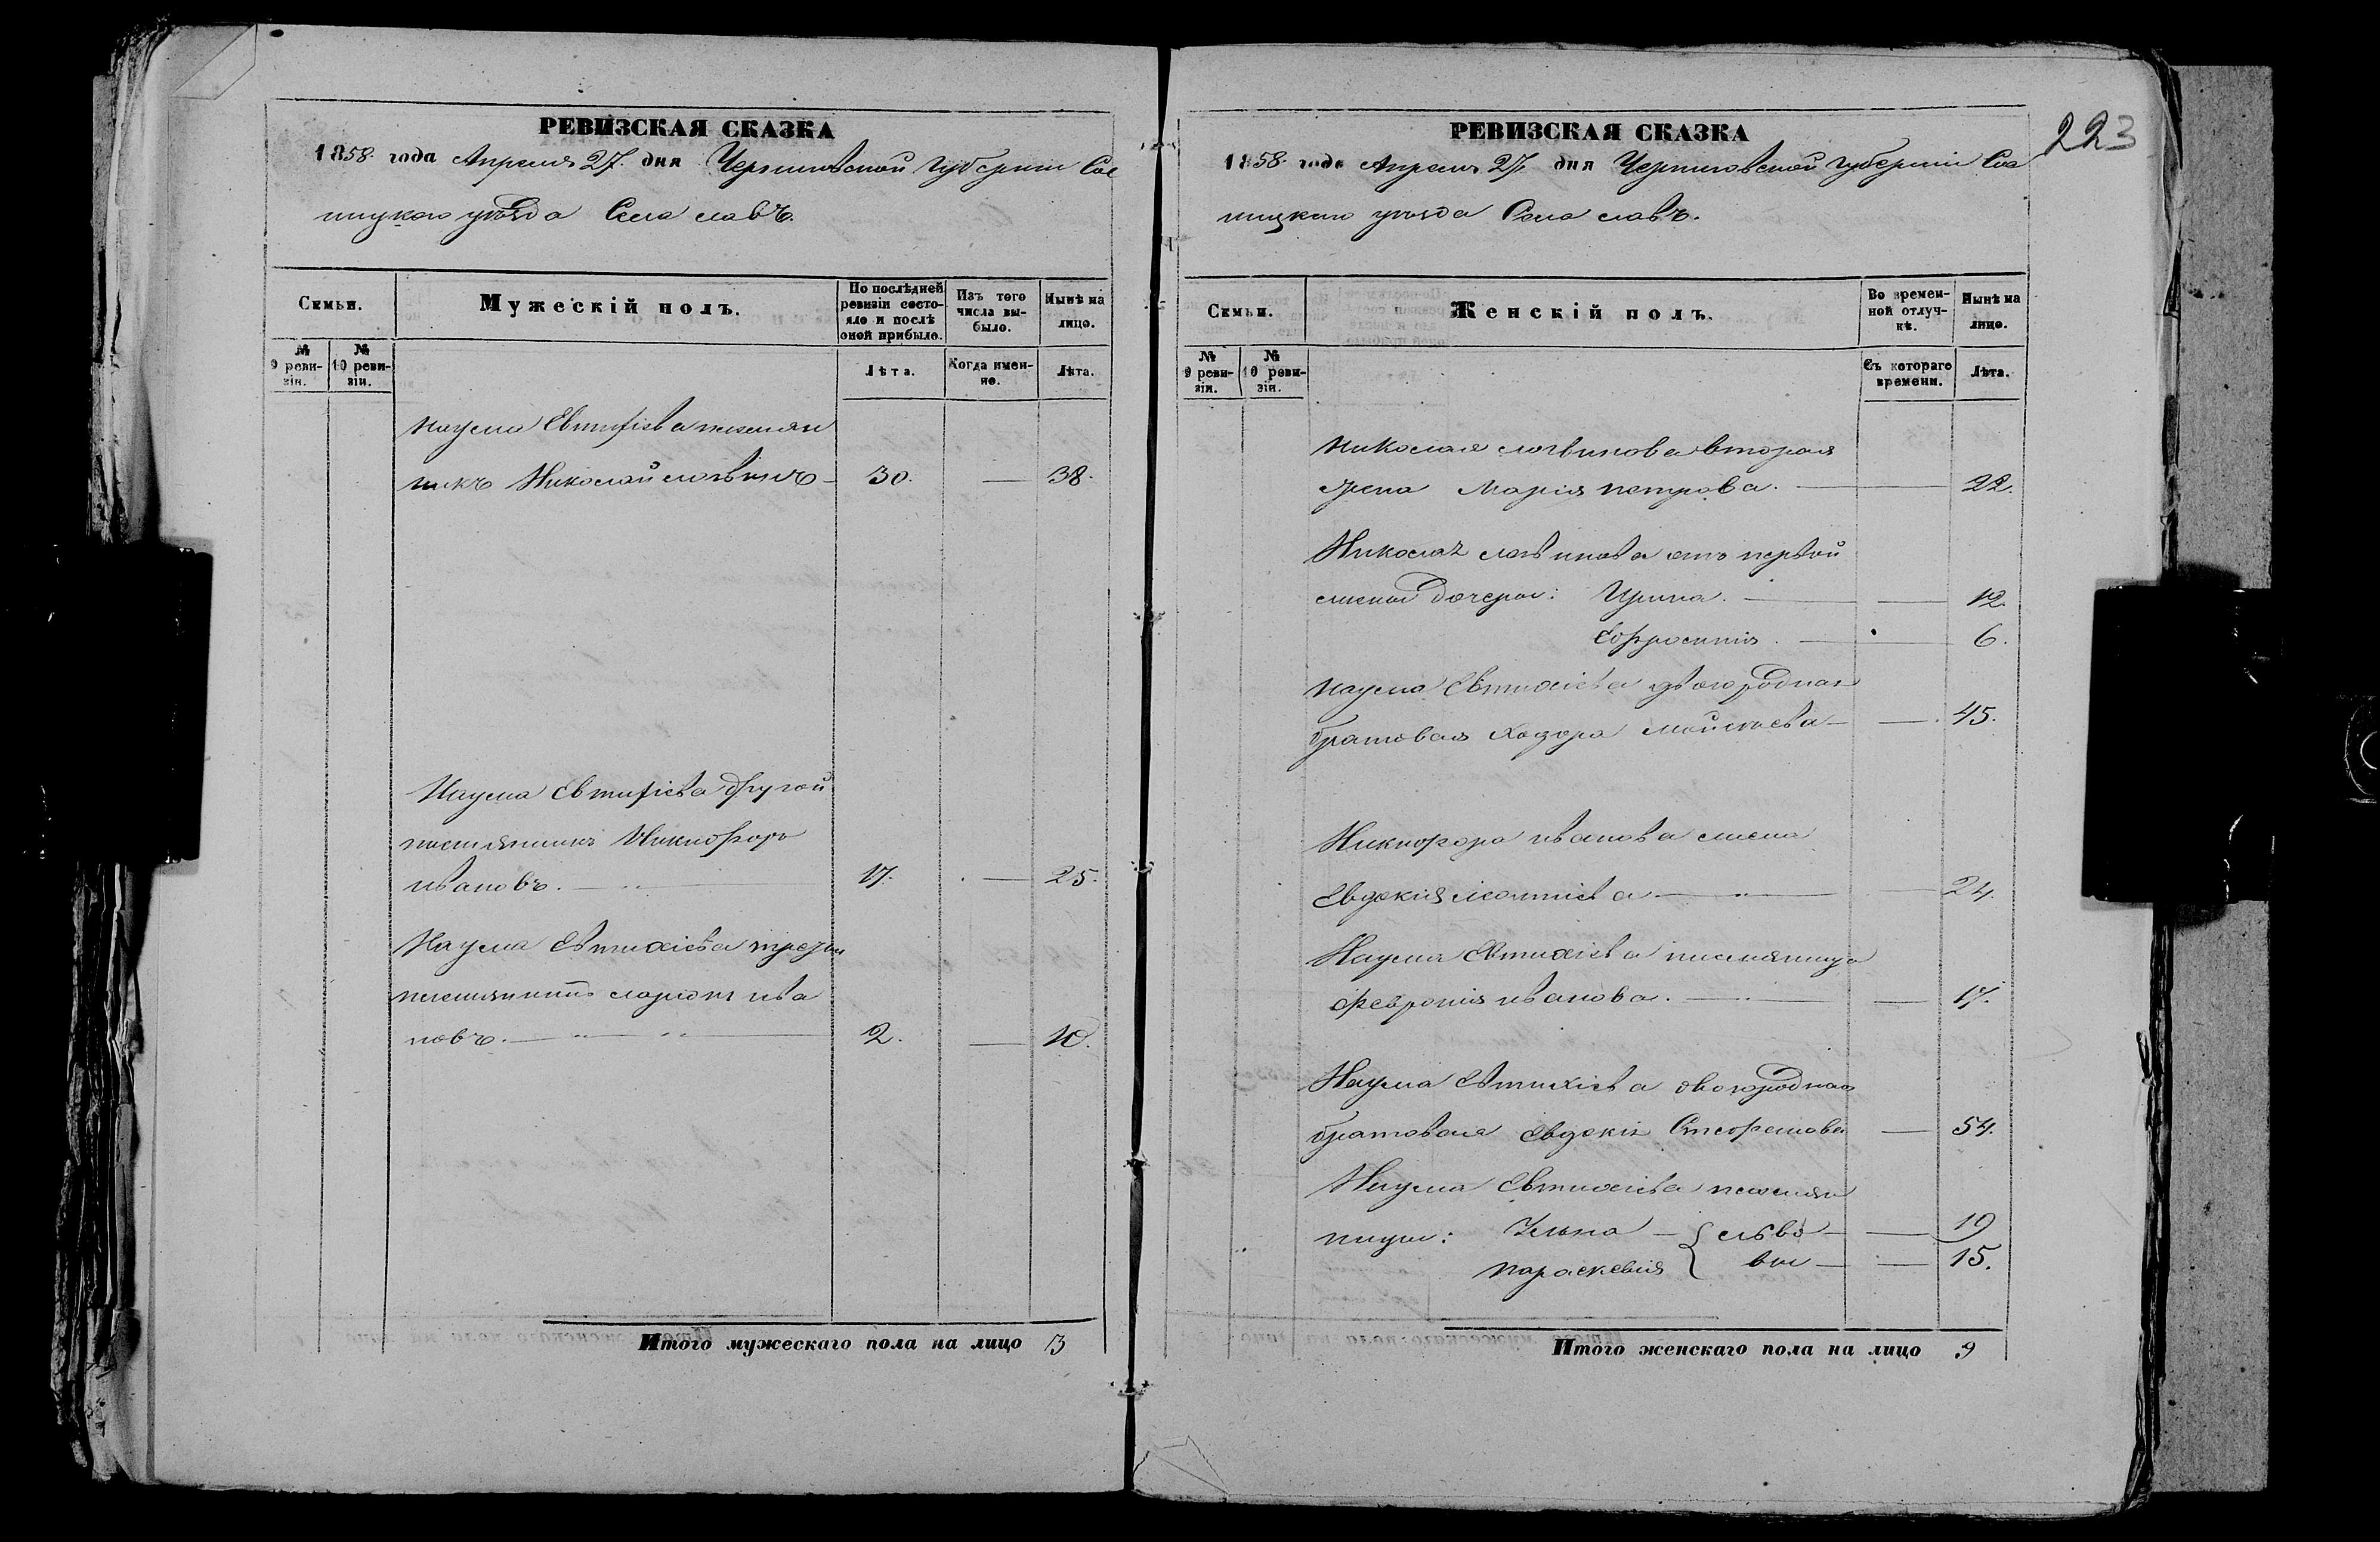 РЕВИЗСКАЯ СКАЗКА
1858 года Апреля 27 дня Черниговской Губернии Сос
ницкаго уѣзда Села
Семьи.
Мужескій полъ.
По послѣдней ревизіи состояло и послѣ оной прибыло.
Изъ того числа выбыло.
Нынѣ на лицо.
№ 9 ревизіи.
№ 10 ревизіи.
Лѣта.
Когда именно.
Лѣта.
Наума Евтифіева племян
никъ Николай Логвинъ 30. 38.
Наума Евтифіева другой
племянникъ Никифоръ
Ивановъ. 17. 25.
Наума Евтихіева третій
племянникъ Ива
новъ. 2. 10.
Итого мужескаго пола на лицо 3
223
РЕВИЗСКАЯ СКАЗКА
1858 года Апреля 27 дня Черниговской Губерніи Сос
ницкаго уѣзда Села
Семьи.
Женскій полъ.
Во временной отлучкѣ.
Нынѣ на лицо.
№ 9 ревизіи.
№ 10 ревизіи.
Съ котораго времени.
Лѣта.
Николая Логвинова вторая
жена Марія Петрова. 22.
Николая Логвинова отъ первой
жены дочери: Ирина. 12.
Ефросинія. 6.
Наума Евтихіева двоюродная
братовая Мойсіева 45.
Никифора Иванова жена
Евдокія 24.
Наума Евтихіева племянница
Феврония Иванова. 17.
Наума Евтихіева двоюродная
братовая Евдокія 54.
Наума Евтихіева племян
ницы: 19
Параскевія вы 15.
Итого женскаго пола на лицо 9